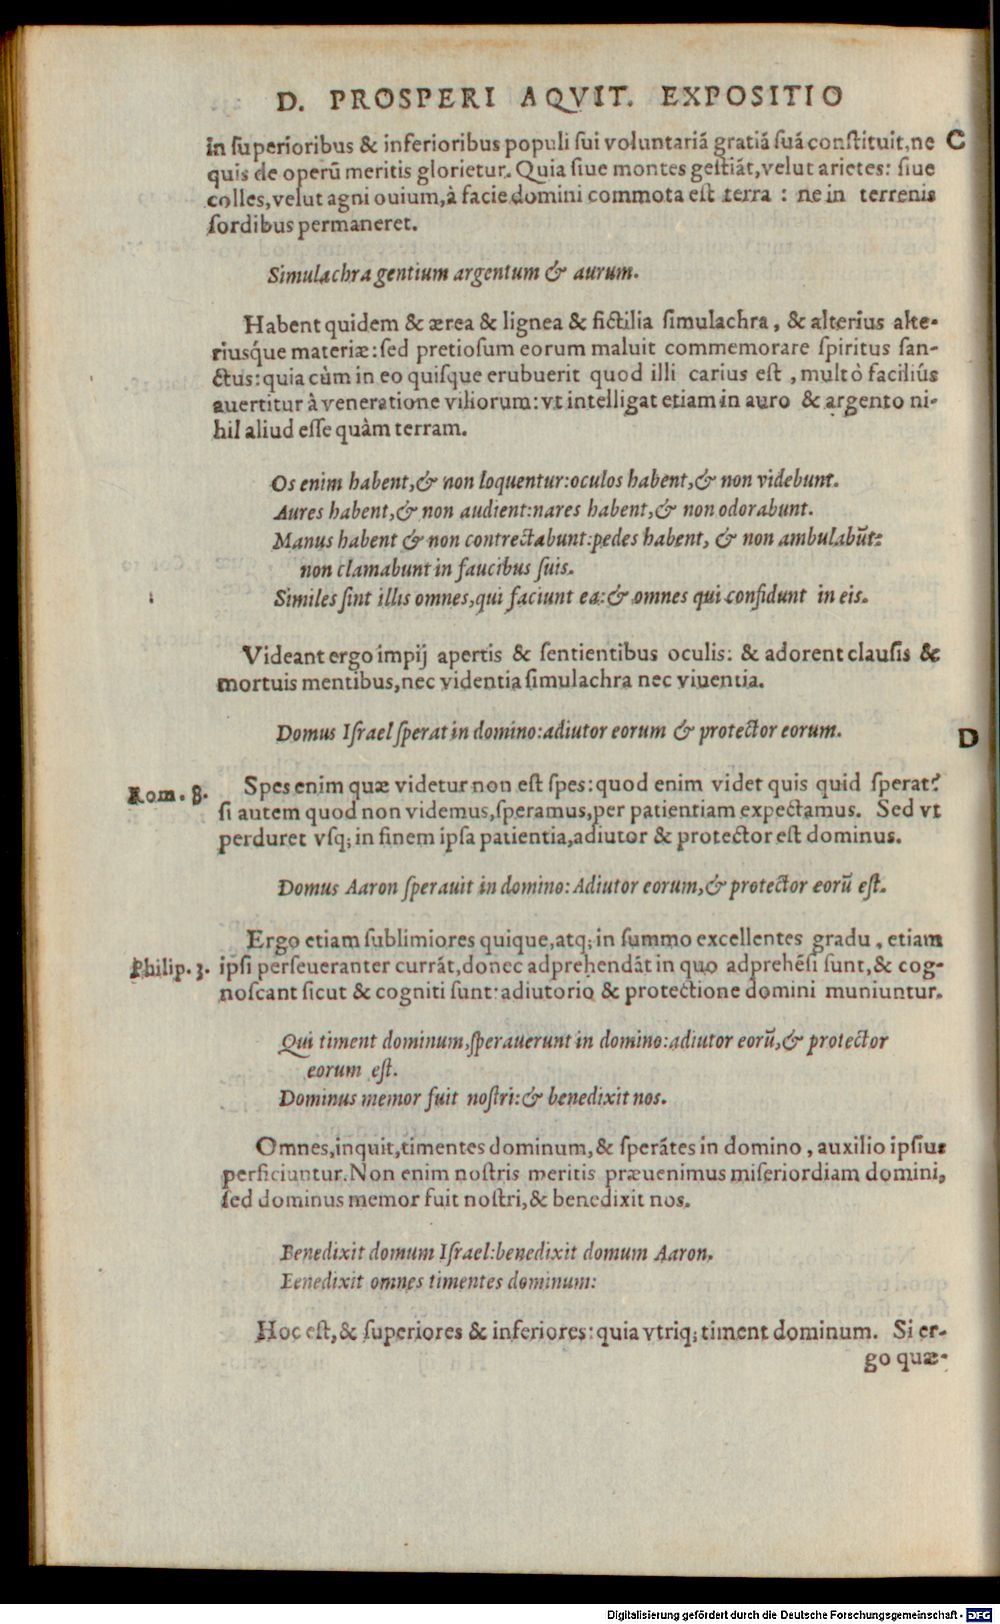 D. PROSPERI AQVIT. EXPOSITIO
in superioribus & inferioribus populi sui voluntariā gratiā suā constituit, ne C
quis de operū meritis glorietur. Quia siue montes gestiāt, velut arietes: siue
colles, velut agni ouium, à facie domini commota est terra : ne in terrenis
sordibus permaneret.
Simulachra gentium argentum & aurum.
Habent quidem & ærea & lignea & fictilia simulachra, & alterius alte-
riusq́ue materiæ: sed pretiosum eorum maluit commemorare spiritus san-
ctus: quia cùm in eo quisque erubuerit quod illi carius est, multò faciliùs
auertitur à veneratione viliorum: vt intelligat etiam in auro & argento ni-
hil aliud esse quàm terram.
Os enim habent, & non loquentur: oculos habent, & non videbunt.
Aures habent, & non audient: nares habent, & non odorabunt.
Manus habent & non contrectabunt: pedes habent, & non ambulabūt:
non clamabunt in faucibus suis.
Similes sint illis omnes, qui faciunt ea: & omnes qui confidunt in eis.
Videant ergo impij apertis & sentientibus oculis: & adorent clausis &
mortuis mentibus, nec videntia simulachra nec viuentia.
Domus Israel sperat in domino: adiutor eorum & protector eorum. D
Rom. 8. Spes enim quæ videtur non est spes: quod enim videt quis quid sperat?
si autem quod non videmus, speramus, per patientiam expectamus. Sed vt
perduret vsq; in finem ipsa patientia, adiutor & protector est dominus.
Domus Aaron sperauit in domino: Adiutor eorum, & protector eorū est.
Ergo etiam sublimiores quique, atq; in summo excellentes gradu, etiam
Philip. 3. ipsi perseueranter currāt, donec adprehendāt in quo adprehēsi sunt, & cog-
noscant sicut & cogniti sunt: adiutorio & protectione domini muniuntur.
Qui timent dominum, sperauerunt in domino: adiutor eorū, & protector
eorum est.
Dominus memor fuit nostri: & benedixit nos.
Omnes, inquit, timentes dominum, & sperātes in domino, auxilio ipsius
perficiuntur. Non enim nostris meritis præuenimus miseriordiam domini,
sed dominus memor fuit nostri, & benedixit nos.
Benedixit domum Israel: benedixit domum Aaron.
Benedixit omnes timentes dominum:
Hoc est, & superiores & inferiores: quia vtriq; timent dominum. Si er-
go quæ-
Digitalisierung gefördert durch die Deutsche Forschungsgemeinschaft - DFG